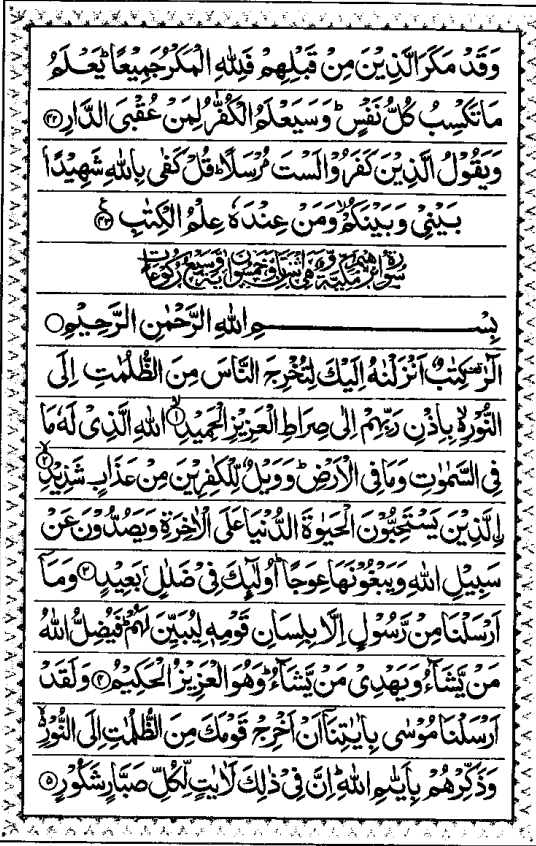 وَقَدْ مَكَرَ الَّذِيْنَ مِنْ قَبْلِهِمْ فَلِلّٰهِ الْمَكْرُ جَمِيْعًا ؕ يَعْلَمُ
مَا تَكْسِبُ كُلُّ نَفْسٍ ؕ وَسَيَعْلَمُ الْكُفّٰرُ لِمَنْ عُقْبَى الدَّارِ ﴿۴۲﴾
وَيَقُوْلُ الَّذِيْنَ كَفَرُوْا لَسْتَ مُرْسَلًا ؕ قُلْ كَفٰى بِاللّٰهِ شَهِيْدًۢا
بَيْنِيْ وَبَيْنَكُمْ ۙ وَمَنْ عِنْدَهٗ عِلْمُ الْكِتٰبِ ﴿۴۳﴾
سورة ابرٰهيم مكية وهي اثنتان وخمسون اية وسبع ركوعات
بِسْمِ اللّٰهِ الرَّحْمٰنِ الرَّحِيْمِ
الٓرٰ ۟ كِتٰبٌ اَنْزَلْنٰهُ اِلَيْكَ لِتُخْرِجَ النَّاسَ مِنَ الظُّلُمٰتِ اِلَى
النُّوْرِ ۙ۬ بِاِذْنِ رَبِّهِمْ اِلٰى صِرَاطِ الْعَزِيْزِ الْحَمِيْدِ ۙ﴿۱﴾ اللّٰهِ الَّذِيْ لَهٗ مَا
فِي السَّمٰوٰتِ وَمَا فِي الْاَرْضِ ؕ وَوَيْلٌ لِّلْكٰفِرِيْنَ مِنْ عَذَابٍ شَدِيْدِ ۙ﴿۲﴾
ۣالَّذِيْنَ يَسْتَحِبُّوْنَ الْحَيٰوةَ الدُّنْيَا عَلَى الْاٰخِرَةِ وَيَصُدُّوْنَ عَنْ
سَبِيْلِ اللّٰهِ وَيَبْغُوْنَهَا عِوَجًا ؕ اُولٰٓئِكَ فِيْ ضَلٰلٍۭ بَعِيْدٍ ﴿۳﴾ وَمَاۤ
اَرْسَلْنَا مِنْ رَّسُوْلٍ اِلَّا بِلِسَانِ قَوْمِهٖ لِيُبَيِّنَ لَهُمْ ؕ فَيُضِلُّ اللّٰهُ
مَنْ يَّشَآءُ وَيَهْدِيْ مَنْ يَّشَآءُ ؕ وَهُوَ الْعَزِيْزُ الْحَكِيْمُ ﴿۴﴾ وَلَقَدْ
اَرْسَلْنَا مُوْسٰى بِاٰيٰتِنَاۤ اَنْ اَخْرِجْ قَوْمَكَ مِنَ الظُّلُمٰتِ اِلَى النُّوْرِ ۙ۬
وَذَكِّرْهُمْ بِاَيّٰىمِ اللّٰهِ ؕ اِنَّ فِيْ ذٰلِكَ لَاٰيٰتٍ لِّكُلِّ صَبَّارٍ شَكُوْرٍ ﴿۵﴾